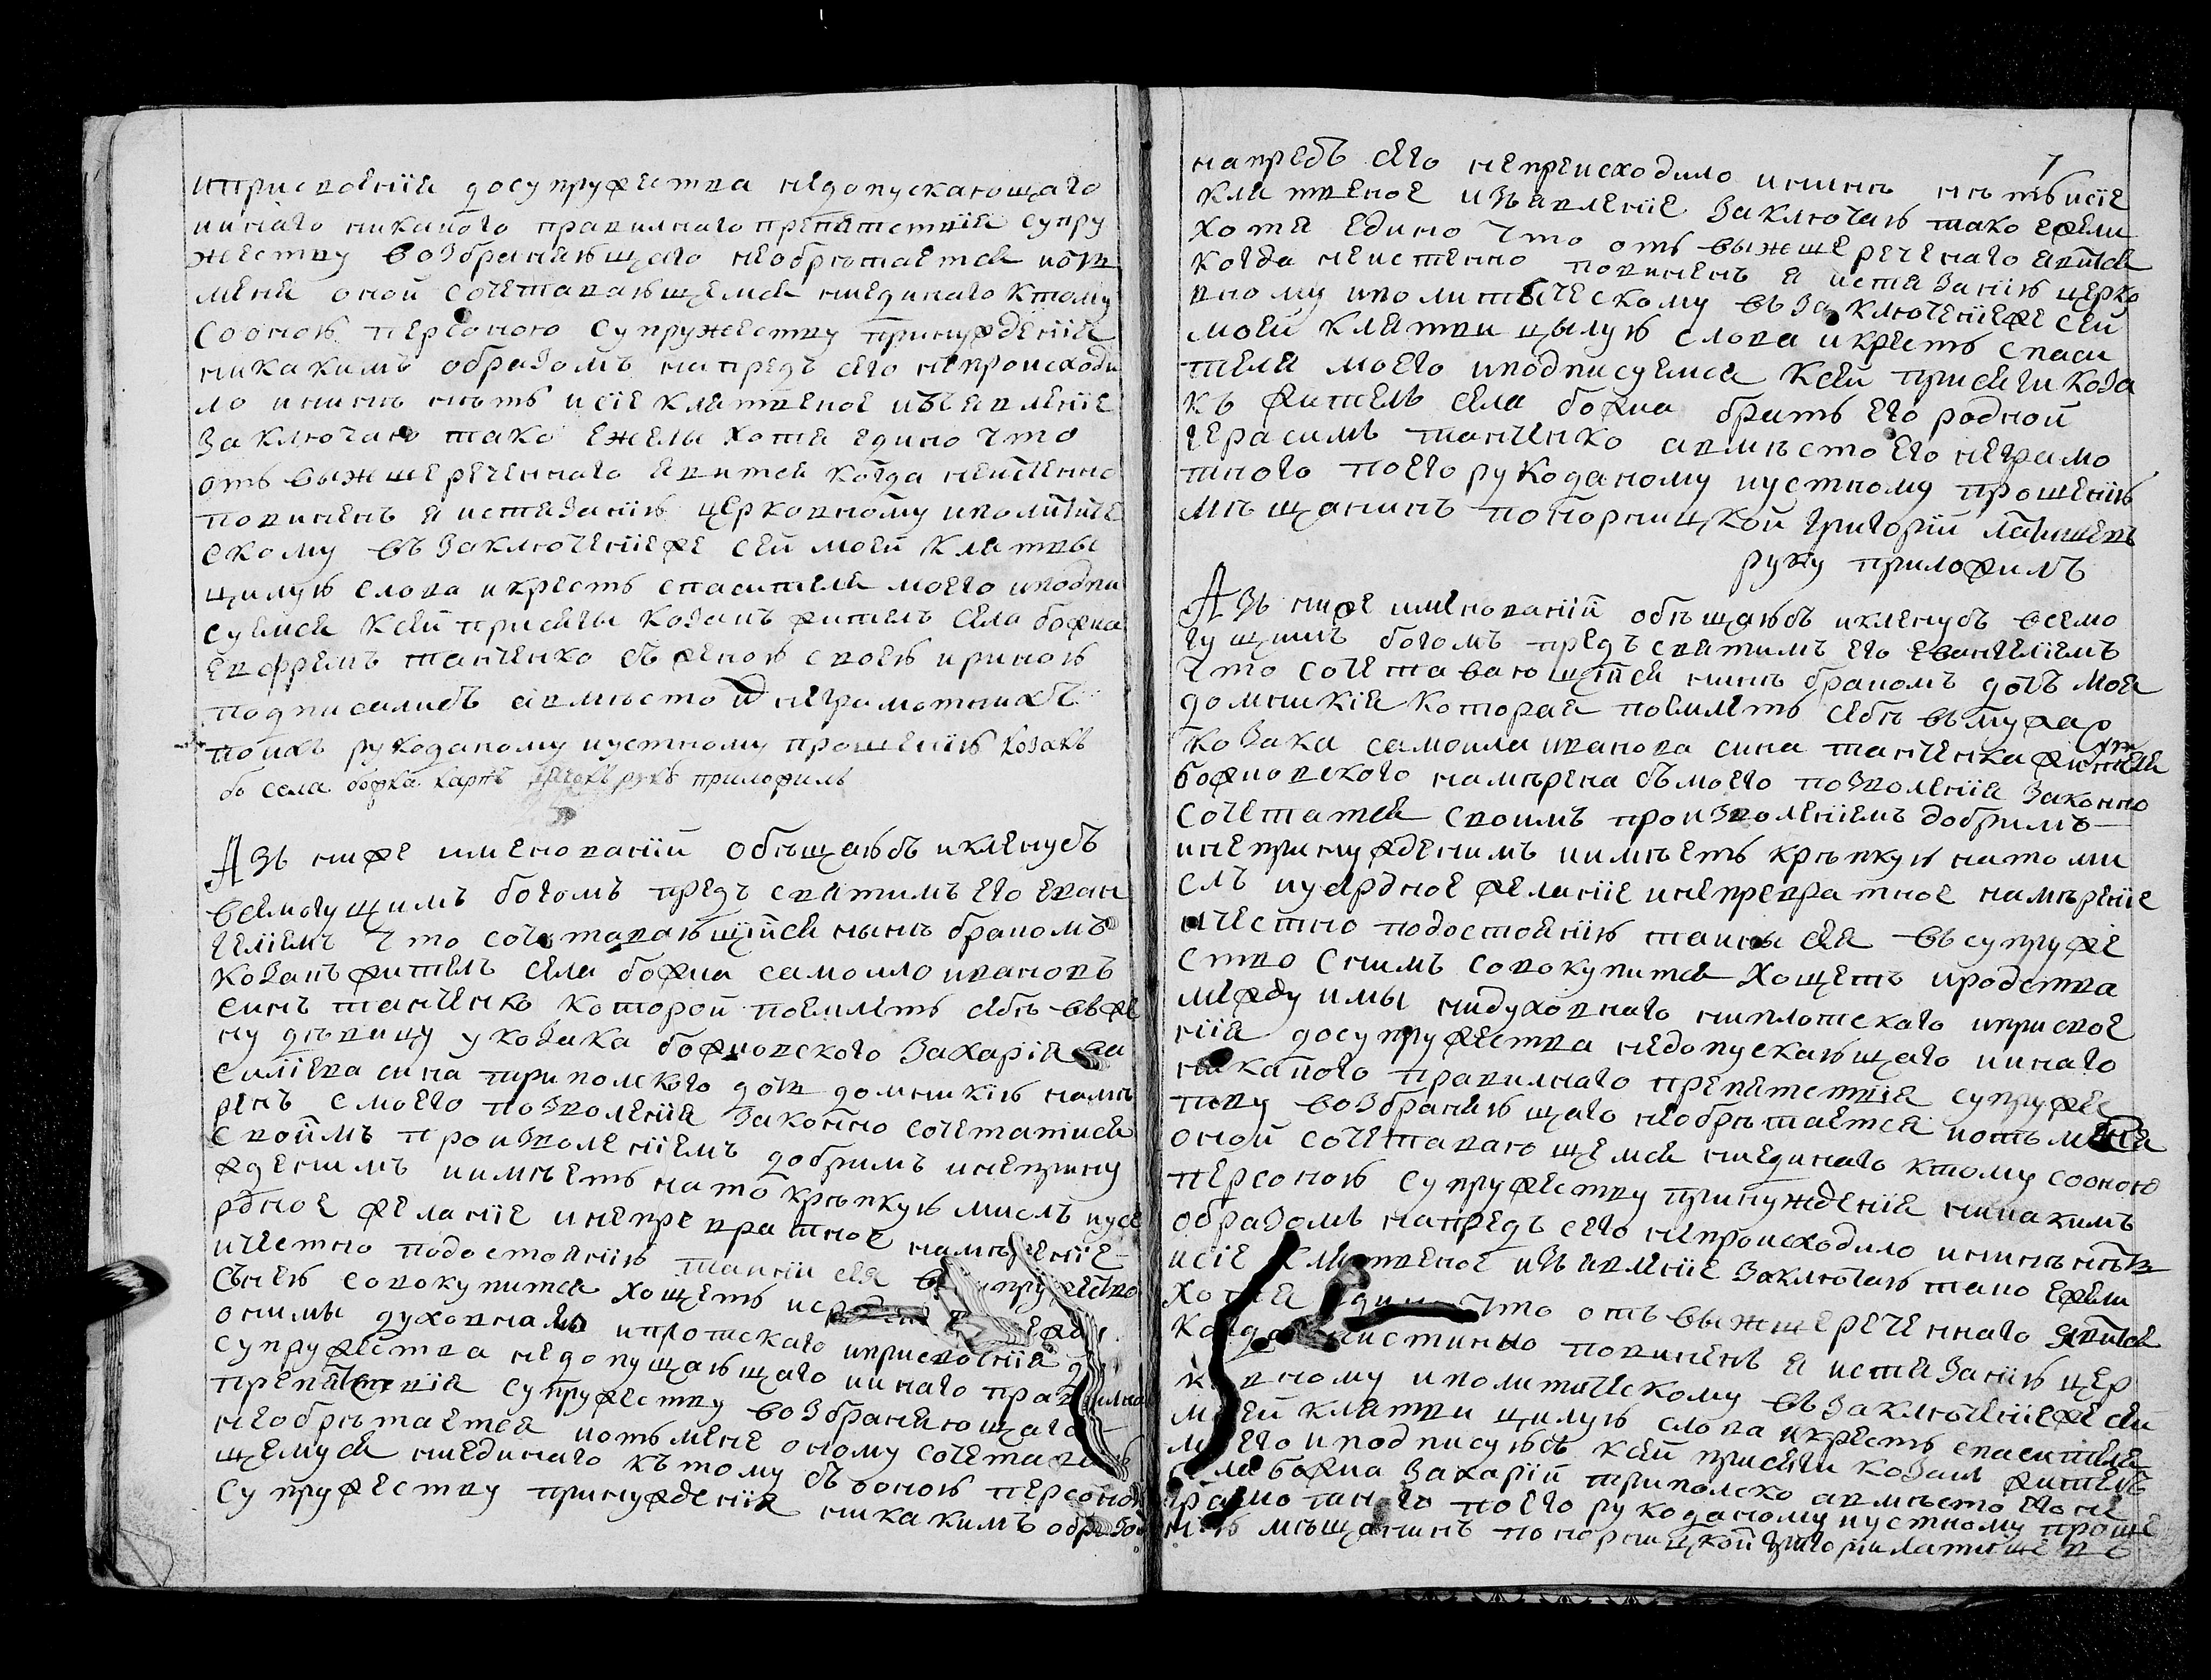 иприсвоения досупружества недопускающаго
инаго никакого правилнаго препятствия супру
жеству возбраняющаго необрѣтается иотъ
мене оной сочетавающемся ниединаго ктому
сооною персоною супружеству принуждения
никакимъ образомъ напредъ сего непроисходи
лоининѣ нѣтъ исїе клятвеное изъявленїе
заключаю тако ежелы хотя едино что
отъ выжшереченнаго явится когда неистенно
повиненъ я истязанїю церковному иполитиче
скому въ заключенїеже сей моей клятвы
цилую слова икрестъ спасителя моего иподпи
суемся ксей присягы козакъ жителъ села божка
евфремъ танченко съ женою своею ириною
подписалисъ авмѣсто их неграмотнихъ
поихъ рукоданому иустному прошенїю козакъ
съ села божка карпъ руку приложилъ
Азъ ниже именованїй обѣщаюсъ икленусъ
всемогущимъ богомъ предъ святимъ его еван
гелїемъ что сочетавающїйся нынѣ бракомъ
козакъ жителъ села божка самоило ивановъ
синъ танченко которой поемлетъ себѣ въ же
ну дѣвицу у козака божковского захарїя ва
силїева сина триполского дочъ домникїю намѣ
ренъ смоего позволенїя законно сочетатися
своимъ произволенїемъ добримъ инеприну
жденимъ иимѣетъ нато крѣпкую мислъ иусе
рдное желанїе инепревратное намѣренїе
ичестно подостоянїю таини сея въ супружество
сънею совокупится хощетъ
оними духовнаго иплотскаго иприсвоенїя до
супружества недопущающаго иинаго правилна
препятствия супружеству возбраняющаго
необрѣтается иотъ мене оному сочетаваю
щемуся ниединаго къ тому съ оною персоною
супружеству принужденїя никакимъ образом
7
напредъ сего непреисходило ининѣ нѣтъ исїе
клятвеное изъявленїе заключаю тако ежели
хотя едино что отъ выжшереченаго явится
когда неистенно повиненъ я истязанїю церко
вному иполитическому въ заключенїеже сей
моей клятви цылую слова икрестъ спаси
теля моего иподписуемся ксей присяги коза
къ жителъ села божка братъ его родной
герасимъ танченко авмѣсто его неграмо
тного поего рукоданому иустному прошенїю
мѣщанинъ понорницкой григорїй латишевъ
руку приложилъ
Азъ ниже именованїй обѣщаюсъ икленусъ всемо
гущимъ богомъ предъ святимъ его евангелїемъ
что сочетавающїйся нинѣ бракомъ дочъ моя
домникїя которая поемлетъ себѣ въ мужа
козака самоила иванова сина танченка жителя
божковского намѣрена съ моего позволенїя законно
сочетатся своимъ произволенїемъ добримъ
инепринужденимъ иимѣетъ крѣпкую натоми
слъ иусердное желанїе инепревратное намѣренїе
ичестно подостоянїю таины сея въ супруже
ство снимъ совокупится хощетъ иродства
между имы нидуховнаго ниплотскаго иприсвое
нїя досупружества недопускающаго иинаго
никакого правилнаго препятствїя супруже
тву возбраняющаго необрѣтается иотъ мене
оной сочетавающемся ниединаго ктому сооною
персоною супружеству принужденїя никакимъ
образомъ напредъ сего непроисходило ининѣ нѣтъ
исїе клятвеное изъявленїе заключаю тако ежели
хотя едино что отъ выжшереченнаго явится
когда неистинно повиненъ я истязанїю цер
ковному иполитическому въ заключенїеже сей
моей клятви цилую слова икрестъ спасителя
моего иподписуюсъ ксей присяги козакъ жителъ
села божка захарїй триполско авмѣсто его не
грамотнаго поего рукоданому иустному проше
нїю мѣщанинъ понорницкой григорїй латишевъ